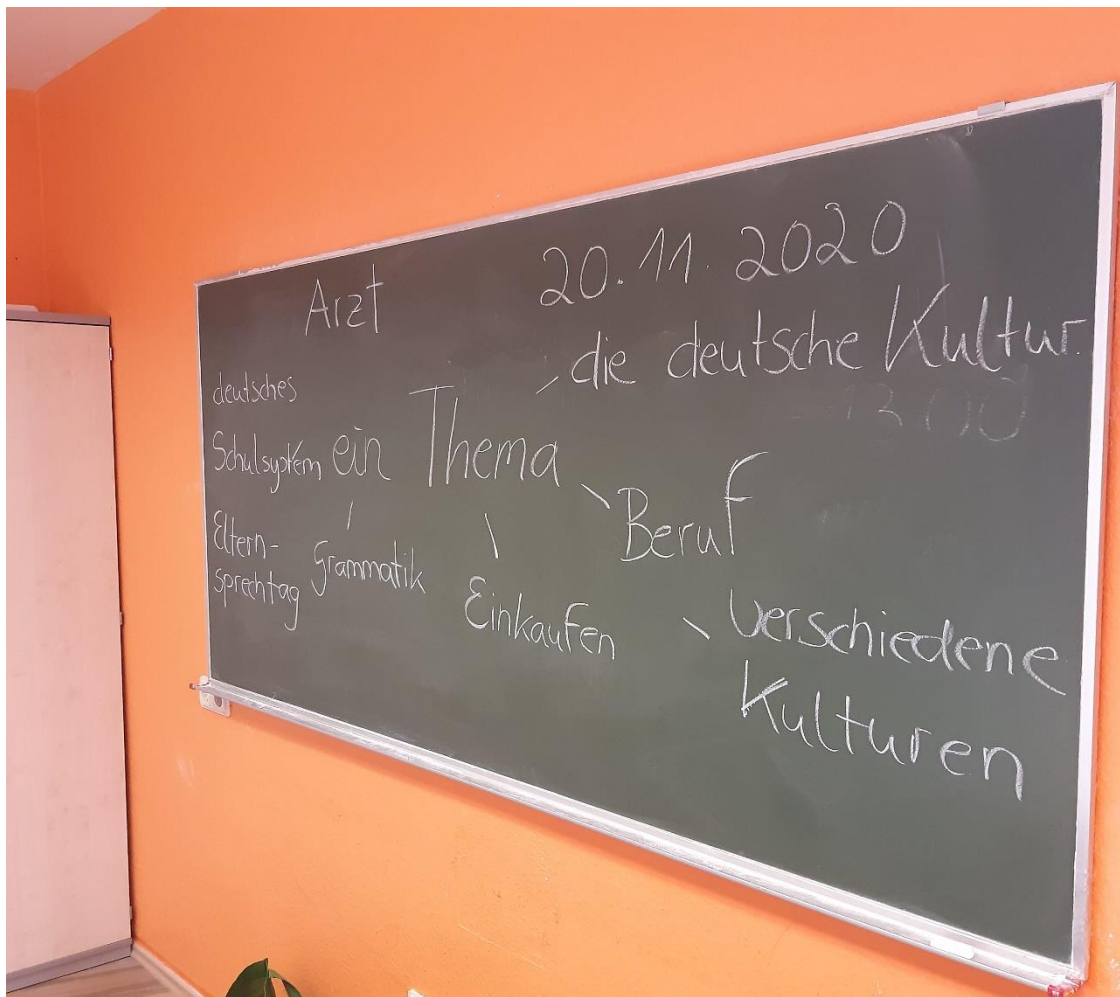 Arzt
20.11.2020
die deutsche Kultur.
deutsches
Schulsystem
ein Thema
Eltern-
sprechtag
Grammatik
Einkaufen
Beruf
verschiedene
Kulturen